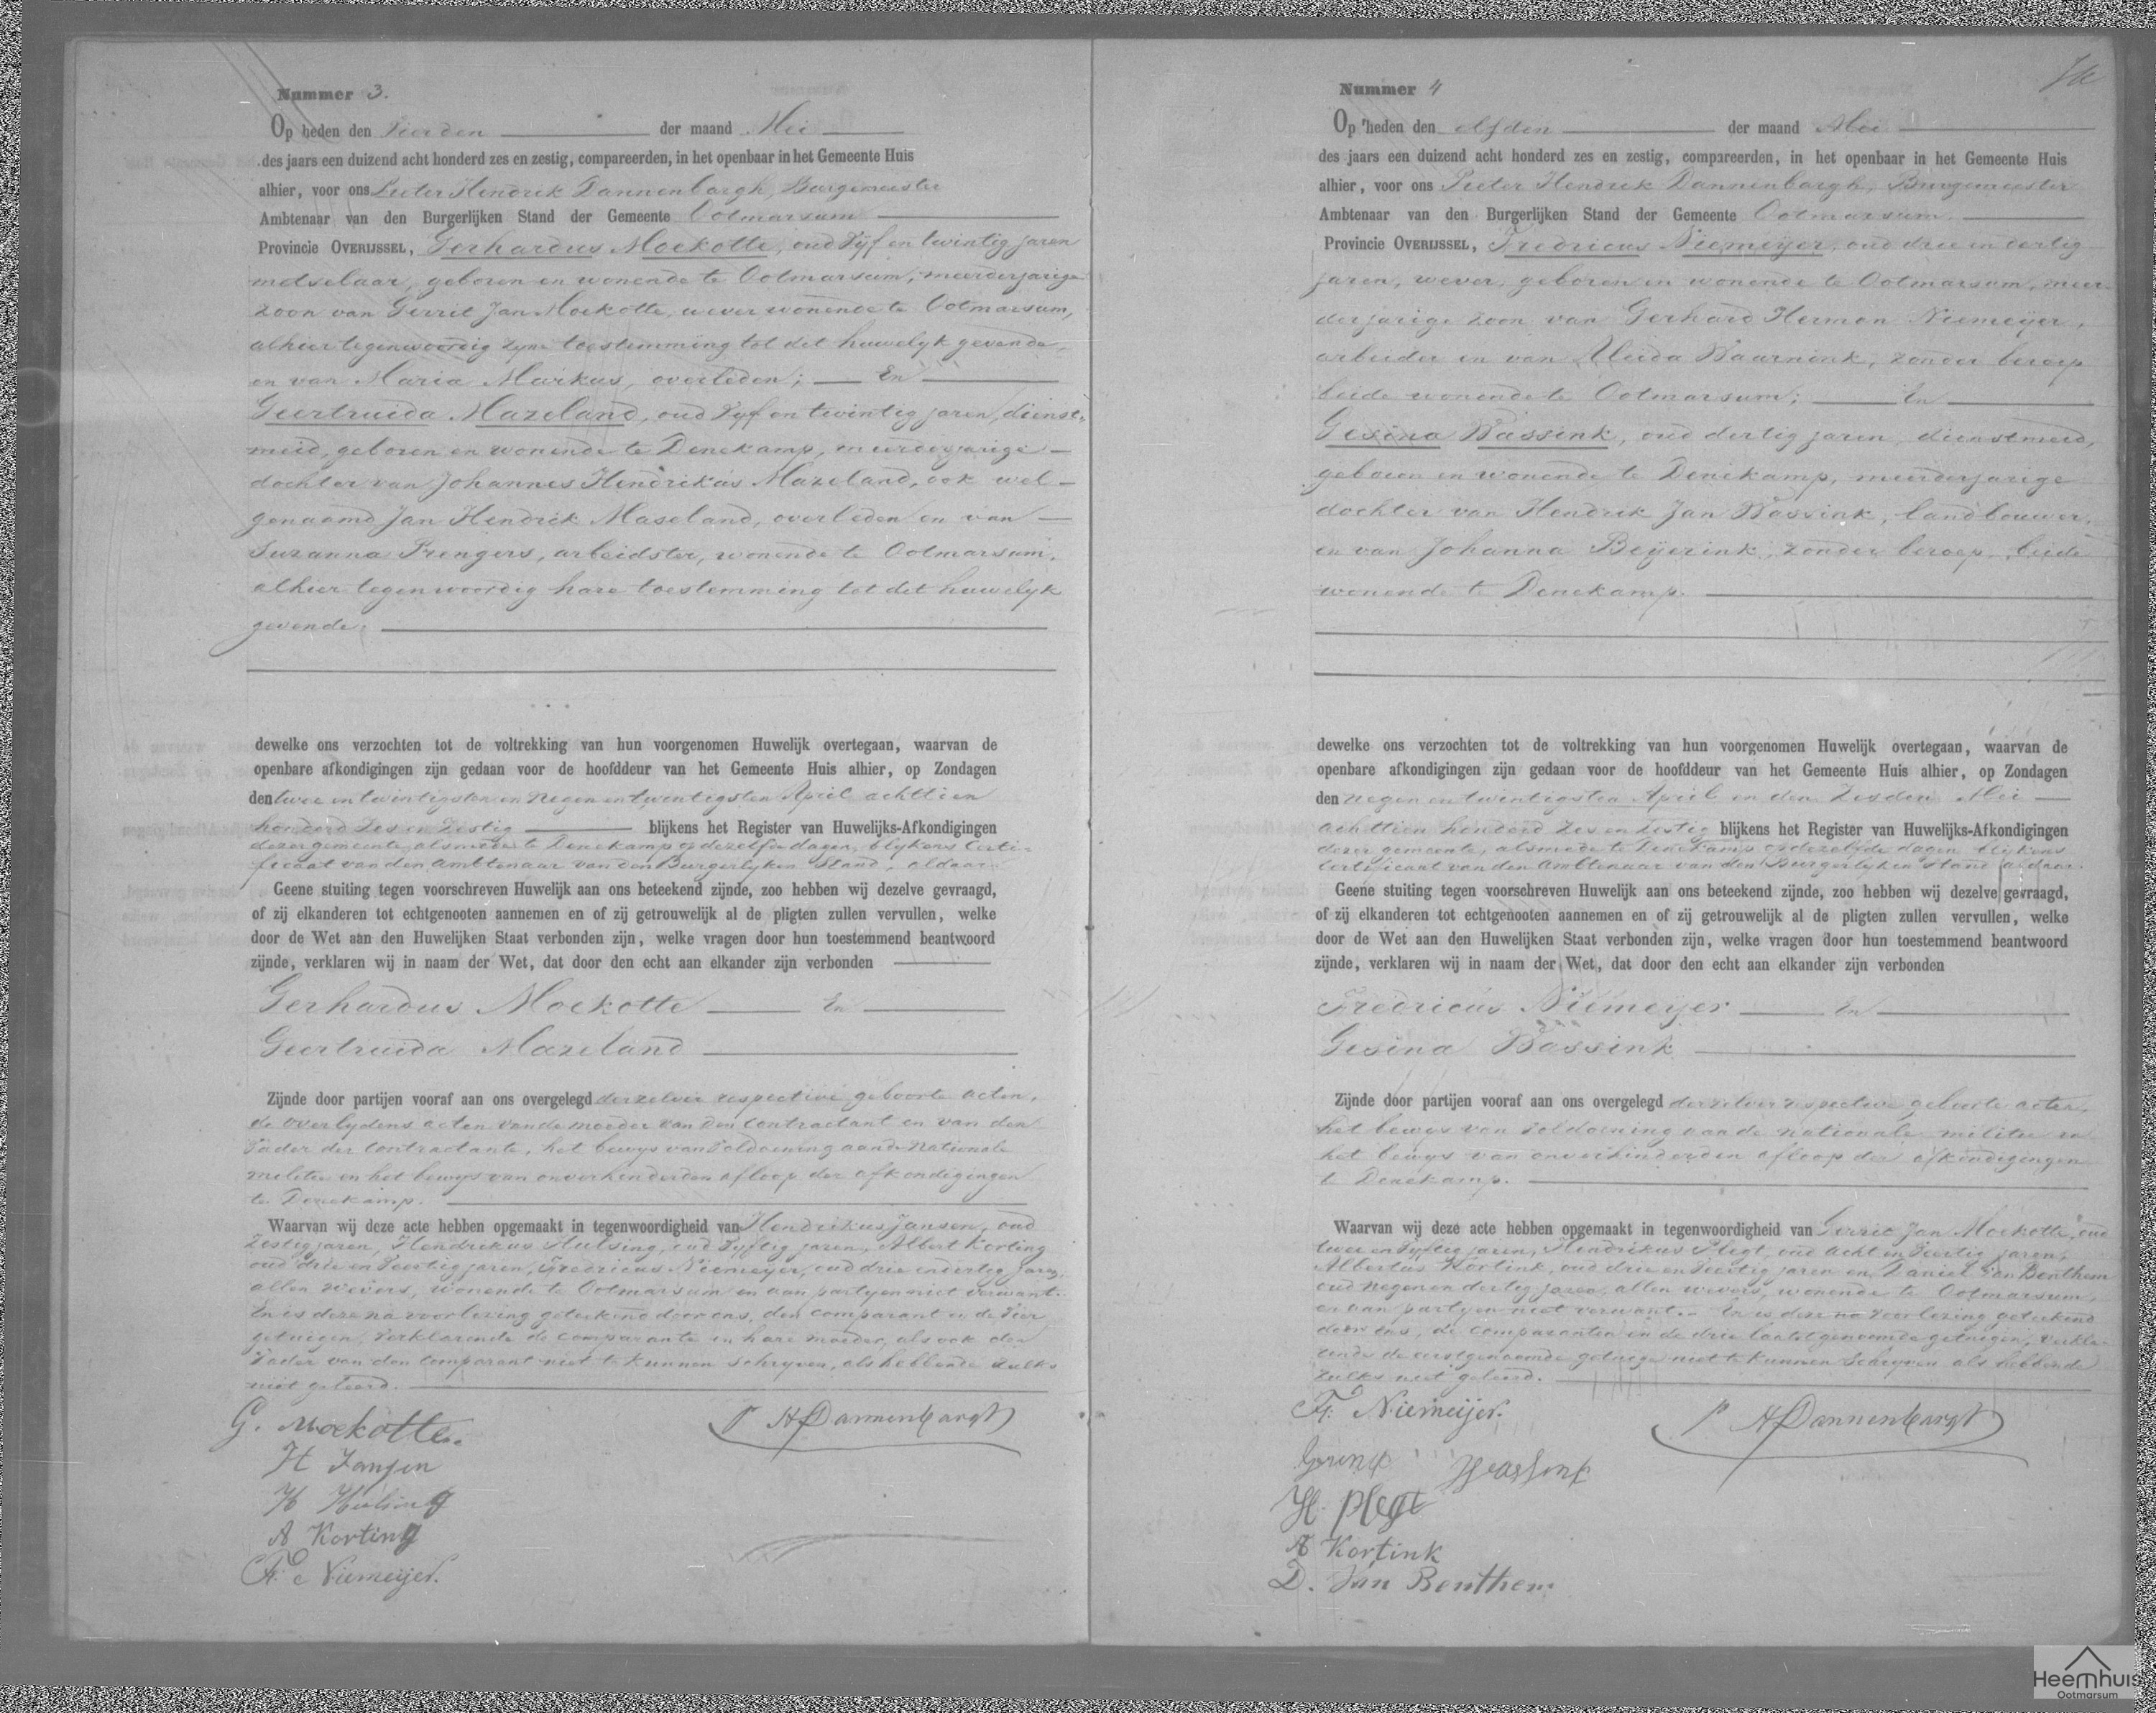 Nummer 3.
Op heden den Vierden der maand Mei
des jaars een duizend acht honderd zes en zestig, compareerden, in het openbaar in het Gemeente Huis
alhier, voor ons Pieter Hendrik Dannenbargh, Burgemeester
Ambtenaar van den Burgerlijken Stand der Gemeente Ootmarsum
Provincie OVERIJSSEL, Gerhardus Moekotte, oud Vyf en twintig jaren
metselaar, geboren en wonende te Ootmarsum, meerderjarige
zoon van Gerrit Jan Moekotte, wever wonende te Ootmarsum,
alhier tegenwoordig zyne toestemming tot dit huwelyk gevende,
en van Maria Markus, overleden; En
Geertruida Mazeland, oud Vyf en twintig jaren, dienst-
meid, geboren en wonende te Denekamp, meerderjarige
dochter van Johannes Hendrikus Mazeland, ook wel
genaamd Jan Hendrik Maseland, overleden en van
Suzanna Prengers, arbeidster, wonende te Ootmarsum,
alhier tegenwoordig hare toestemming tot dit huwelyk
gevende.
dewelke ons verzochten tot de voltrekking van hun voorgenomen Huwelijk overtegaan, waarvan de
openbare afkondigingen zijn gedaan voor de hoofddeur van het Gemeente Huis alhier, op Zondagen
den twee en twintigsten en negen en twintigsten April achttien
honderd zes en zestig blijkens het Register van Huwelijks-Afkondigingen
dezer gemeente, alsmede te Denekamp op dezelfde dagen, blykens Certi-
ficaat van den Ambtenaar van den Burgerlyken Stand, aldaar.
Geene stuiting tegen voorschreven Huwelijk aan ons beteekend zijnde, zoo hebben wij dezelve gevraagd,
of zij elkanderen tot echtgenooten aannemen en of zij getrouwelijk al de pligten zullen vervullen, welke
door de Wet aan den Huwelijken Staat verbonden zijn, welke vragen door hun toestemmend beantwoord
zijnde, verklaren wij in naam der Wet, dat door den echt aan elkander zijn verbonden
Gerhardus Moekotte En
Geertruida Mazeland
Zijnde door partijen vooraf aan ons overgelegd derzelver respective geboorte acten,
de overlydens acten van de moeder van den Contractant en van den
Vader der Contractante, het bewys van Voldoening aan de Nationale
militie en het bewys van onverhinderden afloop der afkondigingen
te Denekamp.
Waarvan wij deze acte hebben opgemaakt in tegenwoordigheid van Hendrikus Jansen, oud
Zestig jaren, Hendrikus Hulsing, oud Vyftig jaren, Albert Korting
oud drie en Veertig jaren, Fredricus Niemeyer, oud drie en dertig jaren,
allen wevers, wonende te Ootmarsum en aan partyen niet verwant.
En is deze na voorlezing geteekend door ons, den comparant en de Vier
getuigen, Verklarende de comparante en hare moeder, als ook den
Vader van den comparant niet te kunnen schryven, als hebbende zulks
niet geleerd.
G. Moekotte. P H Dannenbargh
H Jansen
H Hulsing
A Korting
F. Niemeijer.
Nummer 4
Op heden den elfden der maand Mei
des jaars een duizend acht honderd zes en zestig, compareerden, in het openbaar in het Gemeente Huis
alhier, voor ons Pieter Hendrik Dannenbargh, Burgemeester
Ambtenaar van den Burgerlijken Stand der Gemeente Ootmarsum
Provincie OVERIJSSEL, Fredricus Niemeijer, oud drie en dertig
jaren, wever, geboren en wonende te Ootmarsum, meer-
derjarige zoon van Gerhard Herman Niemeijer,
arbeider en van Aleida Baarnink, zonder beroep
beide wonende te Ootmarsum; En
Gesina Bassink, oud dertig jaren, dienstmeid,
geboren en wonende te Denekamp, meerderjarige
dochter van Hendrik Jan Bassink, landbouwer,
en van Johanna Beijerink, zonder beroep, beide
wonende te Denekamp.
dewelke ons verzochten tot de voltrekking van hun voorgenomen Huwelijk overtegaan, waarvan de
openbare afkondigingen zijn gedaan voor de hoofddeur van het Gemeente Huis alhier, op Zondagen
den negen en twintigsten April en den Zesden Mei
achttien honderd zes en zestig blijkens het Register van Huwelijks-Afkondigingen
dezer gemeente, alsmede te Denekamp op dezelfde dagen blykens
Certificaat van den Ambtenaar van den Burgerlyken Stand aldaar.
Geene stuiting tegen voorschreven Huwelijk aan ons beteekend zijnde, zoo hebben wij dezelve gevraagd,
of zij elkanderen tot echtgenooten aannemen en of zij getrouwelijk al de pligten zullen vervullen, welke
door de Wet aan den Huwelijken Staat verbonden zijn, welke vragen door hun toestemmend beantwoord
zijnde, verklaren wij in naam der Wet, dat door den echt aan elkander zijn verbonden
Fredricus Niemeyer En
Gesina Bassink
Zijnde door partijen vooraf aan ons overgelegd derzelver respective geboorte acten,
het bewys van Voldoening aan de nationale militie en
het bewys van onverhinderden afloop der afkondigingen
te Denekamp.
Waarvan wij deze acte hebben opgemaakt in tegenwoordigheid van Gerrit Jan Moekotte, oud
twee en Vyftig jaren, Hendrikus Plegt, oud acht en Veertig jaren,
Albertus Kortink, oud drie en Veertig jaren en Daniel Van Benthem
oud negen en dertig jaren, allen wevers, wonende te Ootmarsum,
en aan partyen niet verwant. En is deze na Voorlezing geteekend
door ons, de comparanten en de drie laatstgenoemde getuigen, Verkla-
rende de eerstgenoemde getuige niet te kunnen Schryven als hebbende
zulks niet geleerd.
F. Niemeijer. P H Dannenbargh
H. Plegt
A Kortink
D. Van Benthem
Heemhuis
Ootmarsum